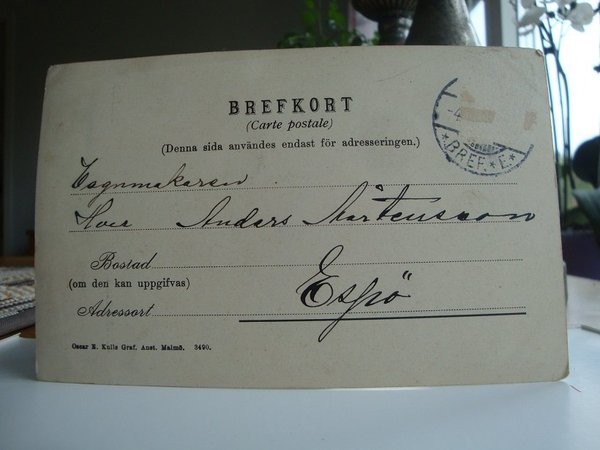 BREFKORT
(Carte postale)
(Denna sida användes endast för adresseringen.)
-4
*BREF*E*
Vagnmakaren
Herr Anders Mårtensson
Bostad
(om den kan uppgifvas)
Espö
Adressort
Oscar E. Kulls Graf. Anst. Malmö. 3490.